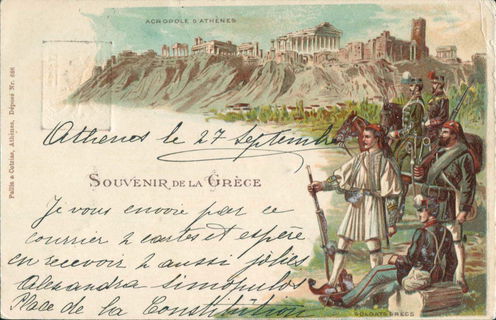 ACROPOLE D'ATHÈNES
Pallis & Cotzias, Athènes, Déposé Nr. 698
Athènes le 27 Septembre
SOUVENIR DE LA GRÈCE
Je vous envoie par ce
courrier 2 cartes et espère
en recevoir 2 aussi jolies
Alexandra Simopulos
Place de la Constitution
SOLDATS GRECS